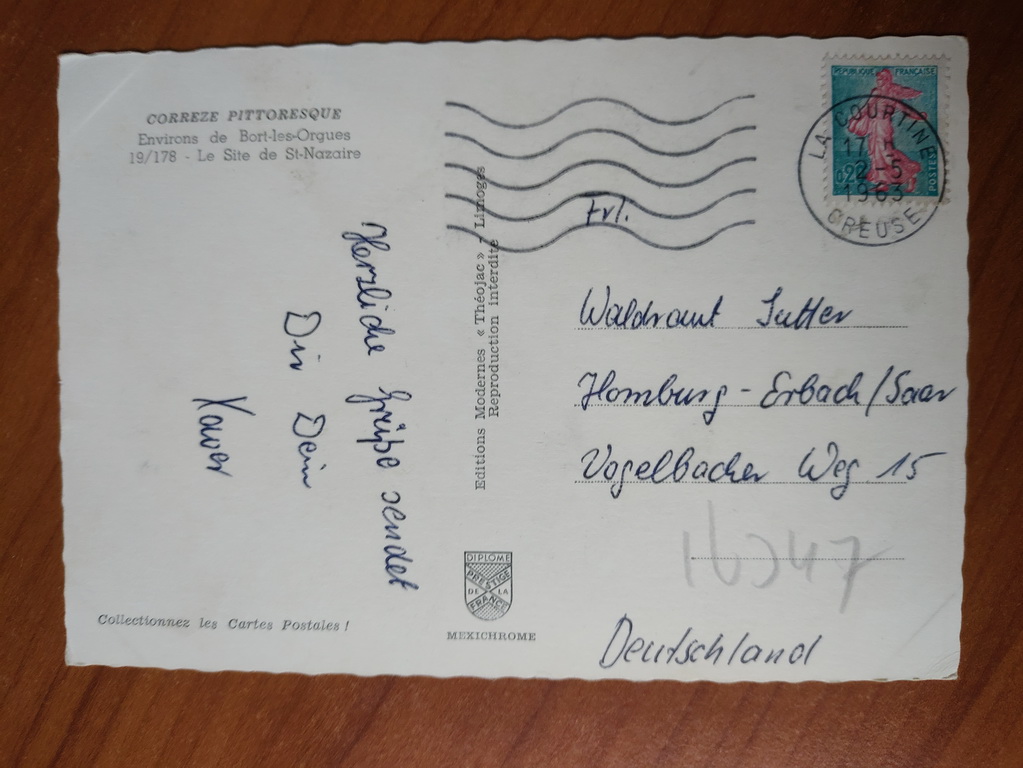 CORREZE PITTORESQUE
Environs de Bort-les-Orgues
19/178 - Le Site de St-Nazaire
Herzliche Grüße sendet
Dir Dein
Xaver
Collectionnez les Cartes Postales !
Editions Modernes « Théojac » - Limoges
Reproduction interdite
DIPLOME
PRESTIGE
DE LA
FRANCE
MEXICHROME
REPUBLIQUE FRANÇAISE
POSTES
LA COURTINE
17 H
22-5
1963
CREUSE
Frl.
Waldraut Sutter
Homburg - Erbach/Saar
Vogelbacher Weg 15
Deutschland